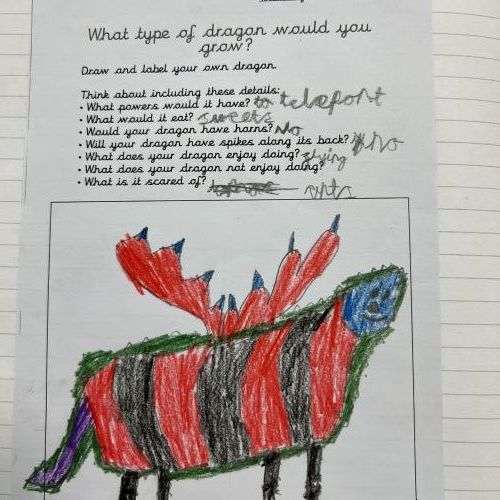 What type of dragon would you
grow?
Draw and label your own dragon.
Think about including these details:
• What powers would it have? to teleport
• What would it eat? sweets
• Would your dragon have horns? No
• Will your dragon have spikes along its back? No
• What does your dragon enjoy doing? flying
• What does your dragon not enjoy doing?
• What is it scared of?